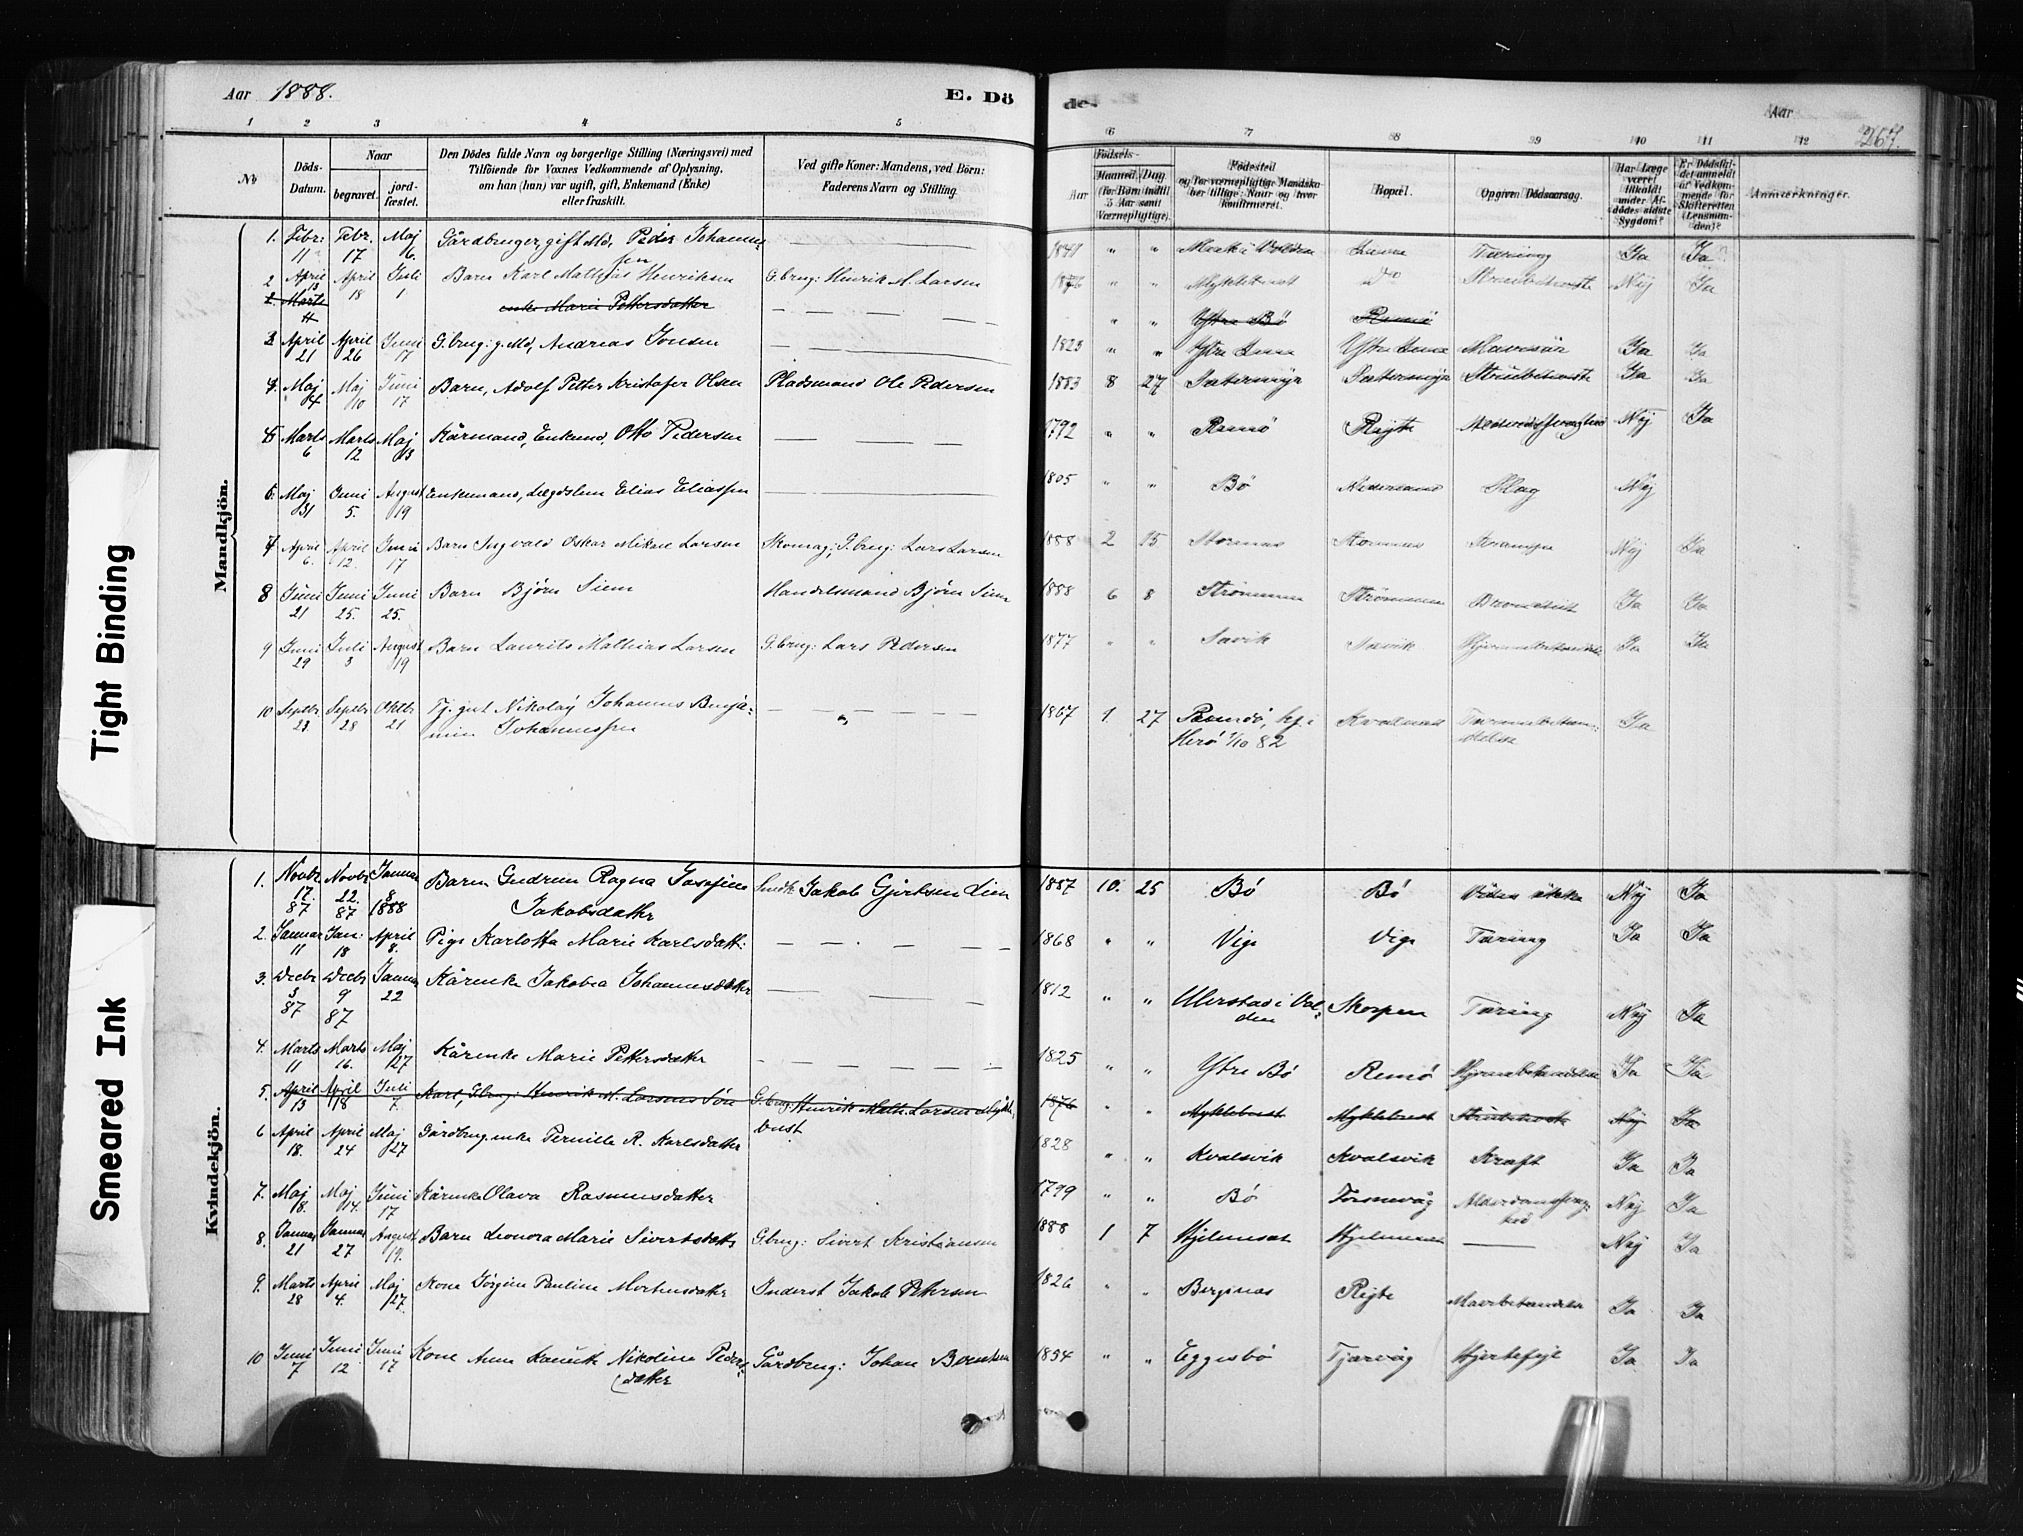 Aar 1888. E. Dö de. Aar 267.
1 2 3 4 5 6 7 8 9 10 11 12
No
Döds-Datum.
Naar
begravet.
jord-fæstet.
Den Dödes fulde Navn og borgerlige Stilling (Næringsvei) med
Tilföiende for Voxnes Vedkommende af Oplysning,
om han (hun) var ugift, gift, Enkemand (Enke)
eller fraskilt.
Ved gifte Koner: Mandens, ved Börn:
Faderens Navn og Stilling.
Födsels-
Aar
Maaned Dag
(for Børn indtil
5 Aar samt
Værnepligtige).
Födested
og for værnepligtig Mandskaber tillige: Naar og hvor
konfirmeret.
Bopæl.
Opgiven Dödsaarsag.
Har Læge
været
tilkaldt
under Afdödes sidste
Sygdom?
Er Dödsfaldet anmeldt
af Vedkommende for
Skifteretten
(Lensmanden)?
Anmærkninger.
Mandkjön.
1. Febr: 11 Febr. 17 Maj 6 Gårdbruger, gift Md, Peder Johannessen — — — 1841 " " i Volden Tæring Ja Ja
2 April 13 April 18 Juli 1 Barn Karl Mathias Henriksen G.brug: Henrik M. Larsen 1876 " " Myklebust do Strubehoste Nej Ja
2. Marts 11 enke Marie Pettersdatter — — — " " Ytre Bø Remø
3 April 21 April 26 Juni 17 G.brug: g. Md, Andreas Jonsen — — — 1823 " " Ytre Ytre Ja Ja
4. Maj 4 Maj 10 Juni 17 Barn, Adolf Petter Kristofer Olsen Pladsmand Ole Pedersen 1883 8 27 Sætermyr Sætermyr Strubehoste Ja Ja
5 Marts 6 Marts 12 Maj 13 Kårmand, Enkemd, Otto Pedersen — — — 1792 " " Remø Røjte Nej Ja
6. Maj 31 Juni 5. August 19 Enkemand, Lægdslem Elias Eliassen 1805 " " Bø Slag Nej
7 April 6. April 12. Juni 17 Barn Ingvald Oskar Mikal Larsen Skomag; G.brug: Lars Larsen 1888 2 15 Krampe Nej Ja
8 Juni 21 Juni 25. Juni 25. Barn Bjørn Siem Handelsmand Bjørn Siem 1888 6 8 Strømmen Strømmen Ja Ja
9 Juni 29 Juli 3 August 19 Barn Laurits Mathias Larsen G.brug: Lars Pedersen 1877 " " Hjernebetændelse Ja Ja
10 Septbr 23. Septbr 28 Oktbr 21 Tj. gut Nikolaj Johannes Benja-
min Johannessen " — — — 1867 1. 27 kf. i
Herø 1/10 82 Kvalsnes Tarmebetæn-
delse Ja
Kvindekjön.
1. Novbr 17. 87 Novbr 22. 87 Januar 8 1888 Barn Gudrun Ragna Josefine
Jakobsdatter Jakob Gjertsen 1887 10. 25 Bø Bø Nej Ja
2. Januar 11 Jan: 18 April 8. Pige Karlotta Marie Karlsdatt: — — — 1868 " " Vige Tæring Ja Ja
3. Decbr 3 87 Decbr 9 87 Januar 22 Kårenke Jakobea Johannesdatter — — — 1812 " " Ulvestad i Vol-
den Skorpen Tæring Nej Ja
4. Marts 11 Marts 16. Maj 27 Kårenke Marie Pettersdatter — — — 1825 " " Ytre Bø Remø Hjernebetændelse Ja Ja
5. April 13 April 18 Juli 7. Karl, G.brug: Henrik M. Larsens Søn G.brug: Henrik Math. Larsen Mykle-
bust 1876 " " Myklebust Myklebust Strubehoste Nej Ja
6 April 18. April 24 Maj 27 Gårdbrug.enke Pernille R. Karlsdatter 1828 " " Kvalsvik Kvalsvik Kræft Ja Ja
7. Maj 8. Maj 14. Juni 17 Kårenke Olava Rasmusdatter 1799 " " Bø Alderdomssvag-
hed Nej Ja
8. Januar 21 Januar 27 August 19. Barn Leonora Marie Sivertsdatter G.brug: Sivert Kristiansen 1888 1 7 Hjelmeset Hjelmeset — Nej Ja
9. Marts 28 April 4. Maj 27. Kone Jørgine Pauline Mortensdatter Inderst Jakob Petersen 1826 " " Berginæs Røjte Mavebetændelse Ja Ja
10 Juni 7 Juni 12 Juni 17 Kone Anna Nikoline Peders-
datter Gårdbrug: Johan Berntsen 1854 " " Eggesbø Tjørvåg Hjertefejl Ja Ja
Tight Binding
Smeared Ink